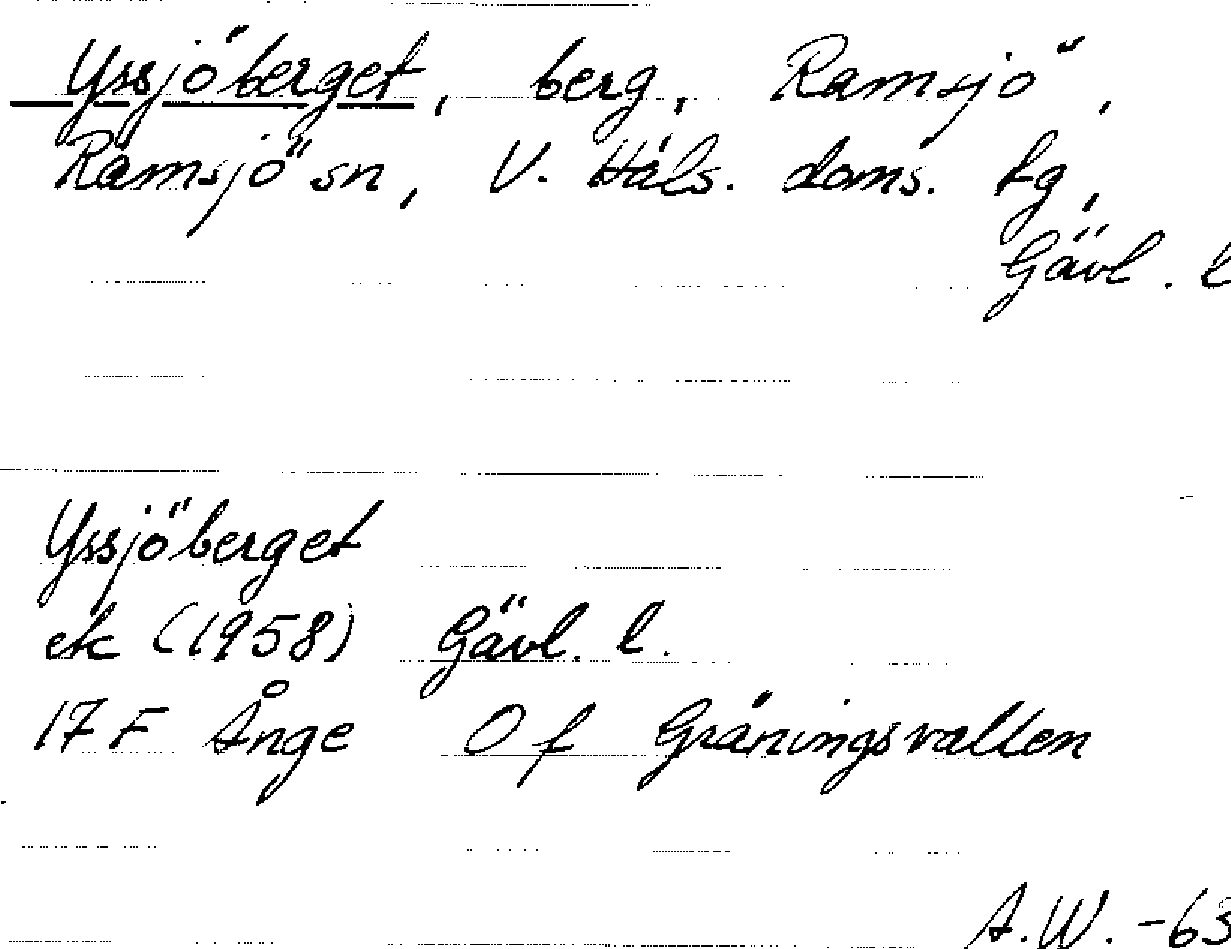 Yssjöberget, berg, Ramsjö,
Ramsjö sn, V. Häls. doms. tg,
Gävl. l
Yssjöberget
ek (1958) Gävl. l.
17 F Ånge O f Gråningsvallen
A.W. -63